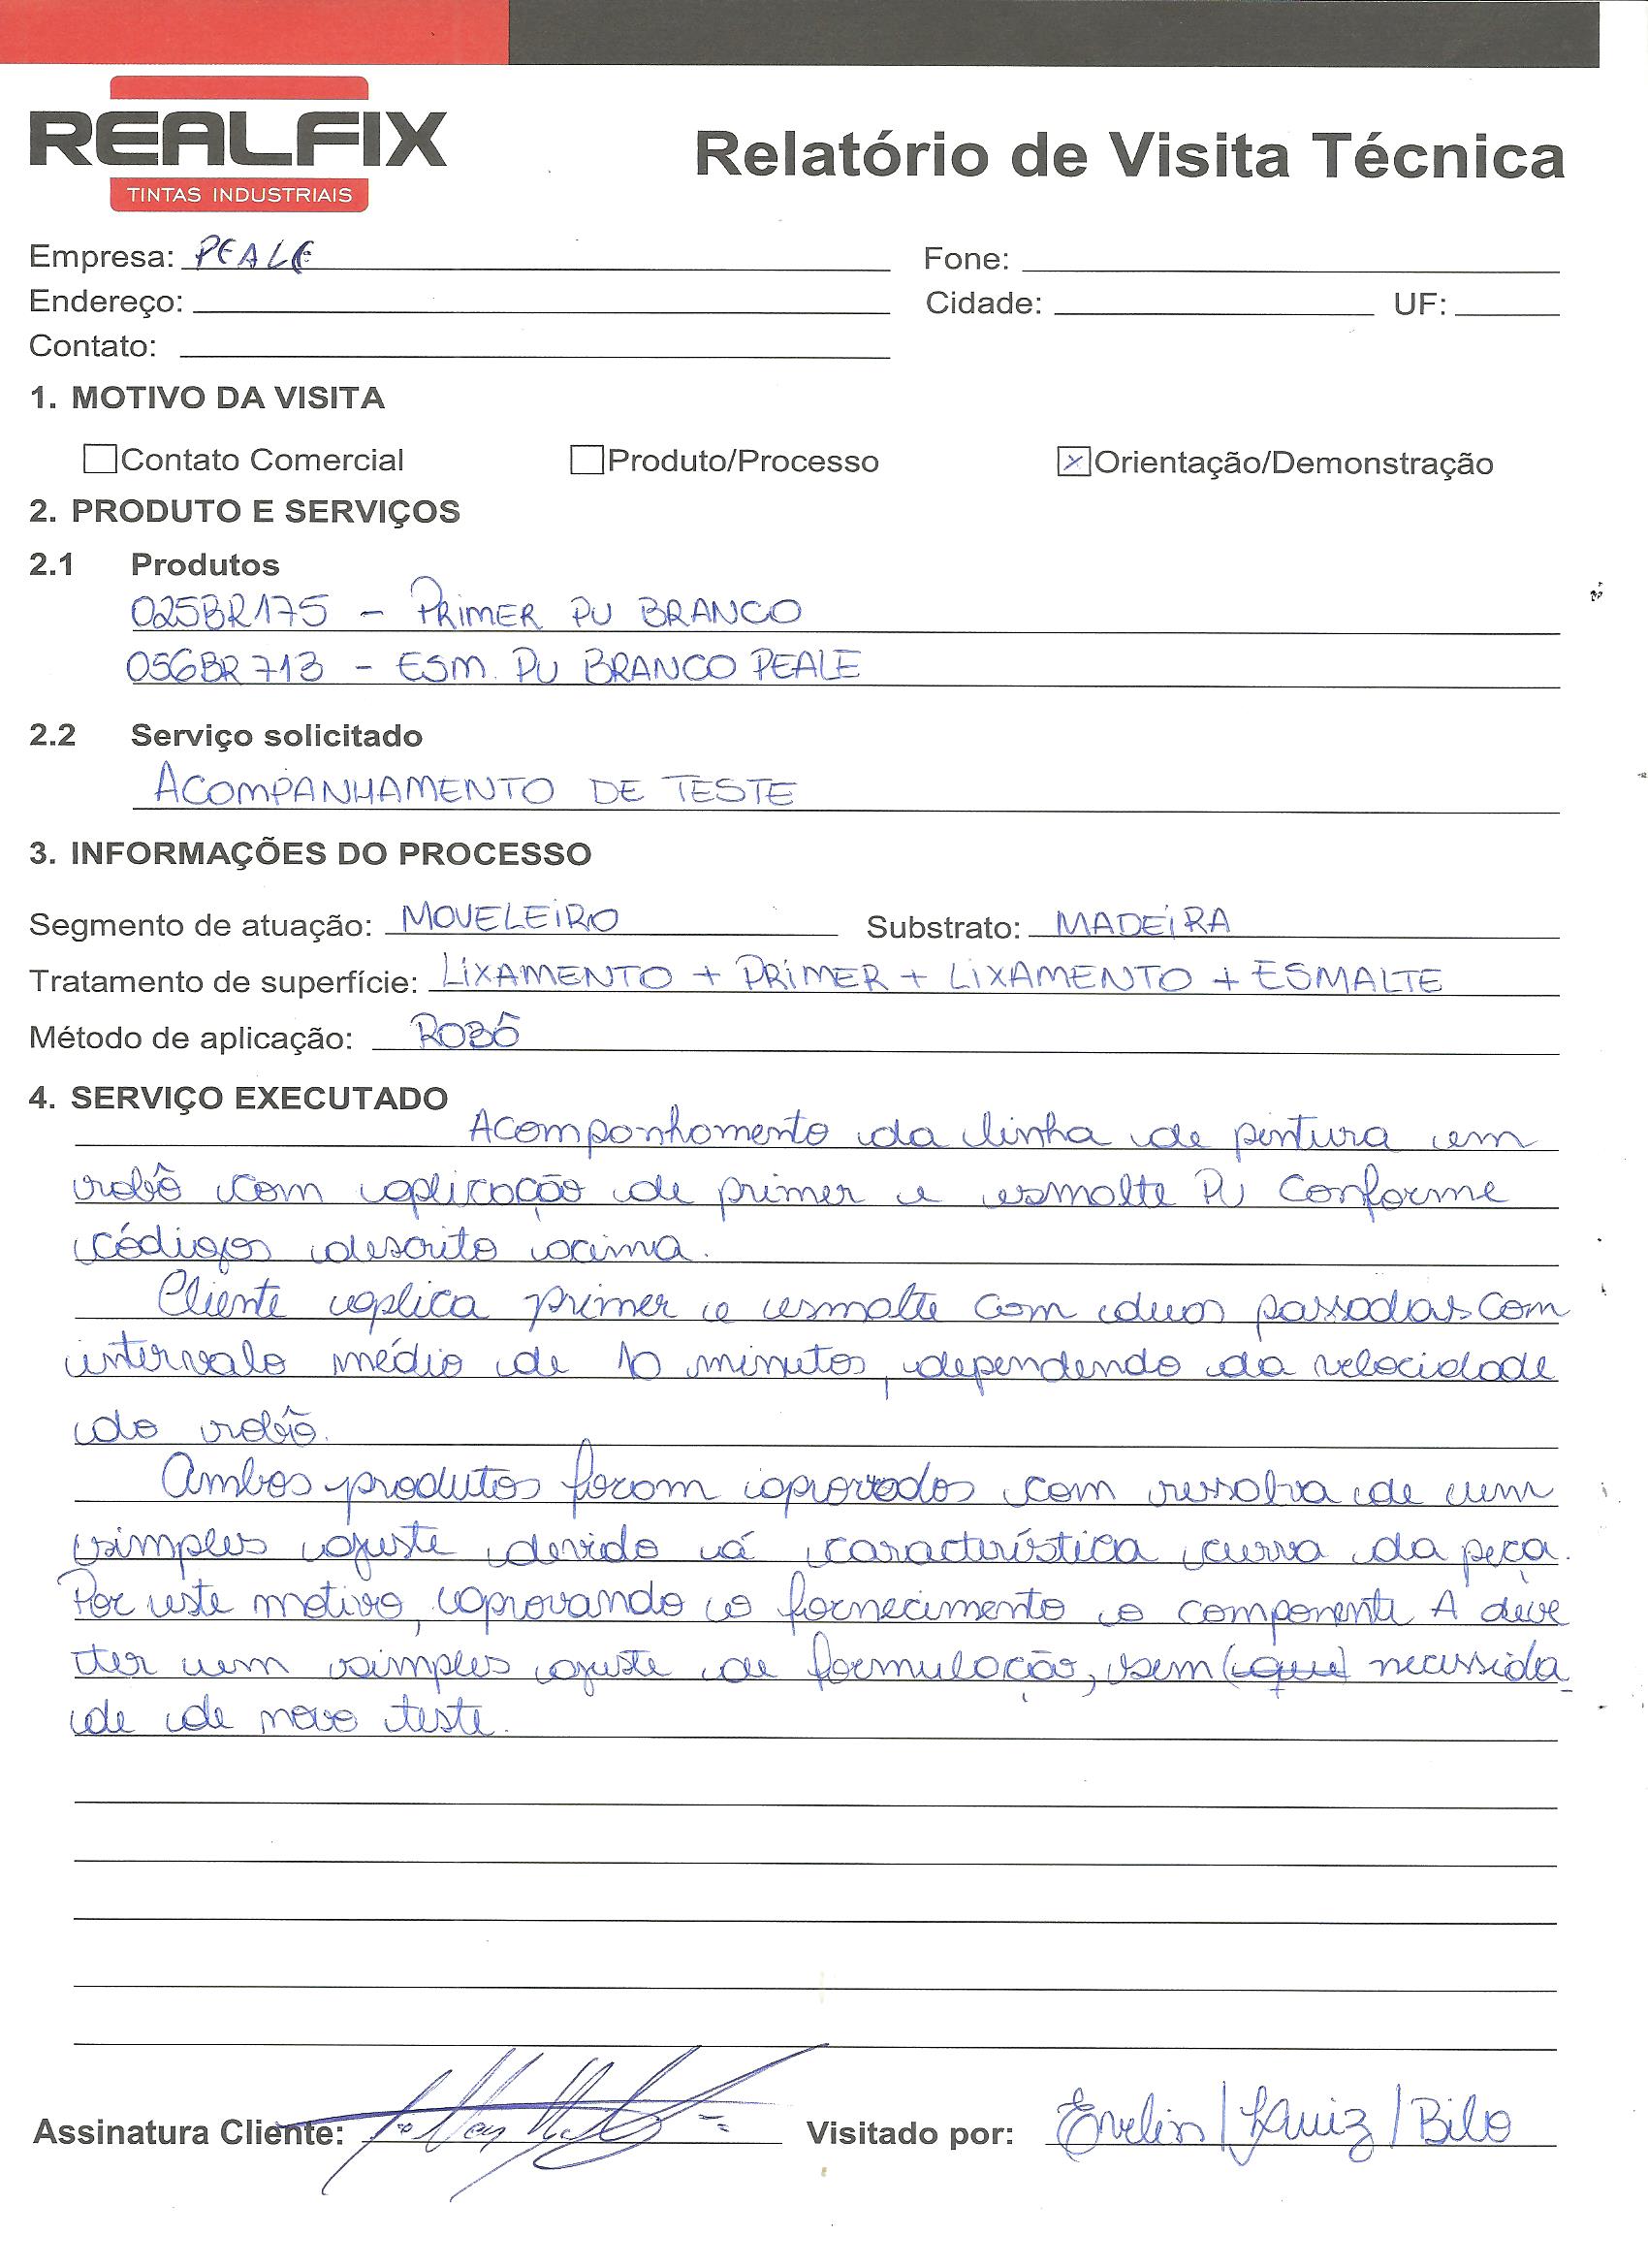 REALFIX
TINTAS INDUSTRIAIS
Relatório de Visita Técnica
Empresa: PEALE Fone:
Endereço: Cidade: UF:
Contato:
1. MOTIVO DA VISITA
Contato Comercial Produto/Processo x Orientação/Demonstração
2. PRODUTO E SERVIÇOS
2.1 Produtos
025BR175 - PRIMER PU BRANCO
056BR713 - ESM. PU BRANCO PEALE
2.2 Serviço solicitado
ACOMPANHAMENTO DE TESTE
3. INFORMAÇÕES DO PROCESSO
Segmento de atuação: MOVELEIRO Substrato: MADEIRA
Tratamento de superfície: LIXAMENTO + PRIMER + LIXAMENTO + ESMALTE
Método de aplicação: ROBÔ
4. SERVIÇO EXECUTADO
Acompanhamento da linha de pintura em
robô com aplicação de primer e esmalte PU conforme
códigos descrito acima.
Cliente aplica primer e esmalte com duas passadas com
intervalo médio de 10 minutos, dependendo da velocidade
do robô.
Ambos produtos foram aprovados com ressalva de um
simples ajuste devido á característica curva da peça.
Por este motivo, aprovando o fornecimento o componente A deve
ter um simples ajuste de formulação, sem (que) necessida
de de novo teste.
Assinatura Cliente: Visitado por: Evelin / Luiz / Bilo